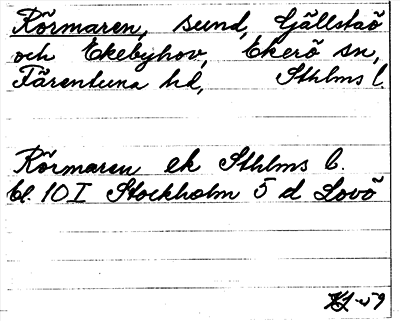 Rörmaren, sund, Gällstaö
och Ekebyhov, Ekerö sn,
Färentuna hd, Sthlms l.
Rörmaren ek Sthlms l.
bl. 10 I Stockholm 5 d Lovö